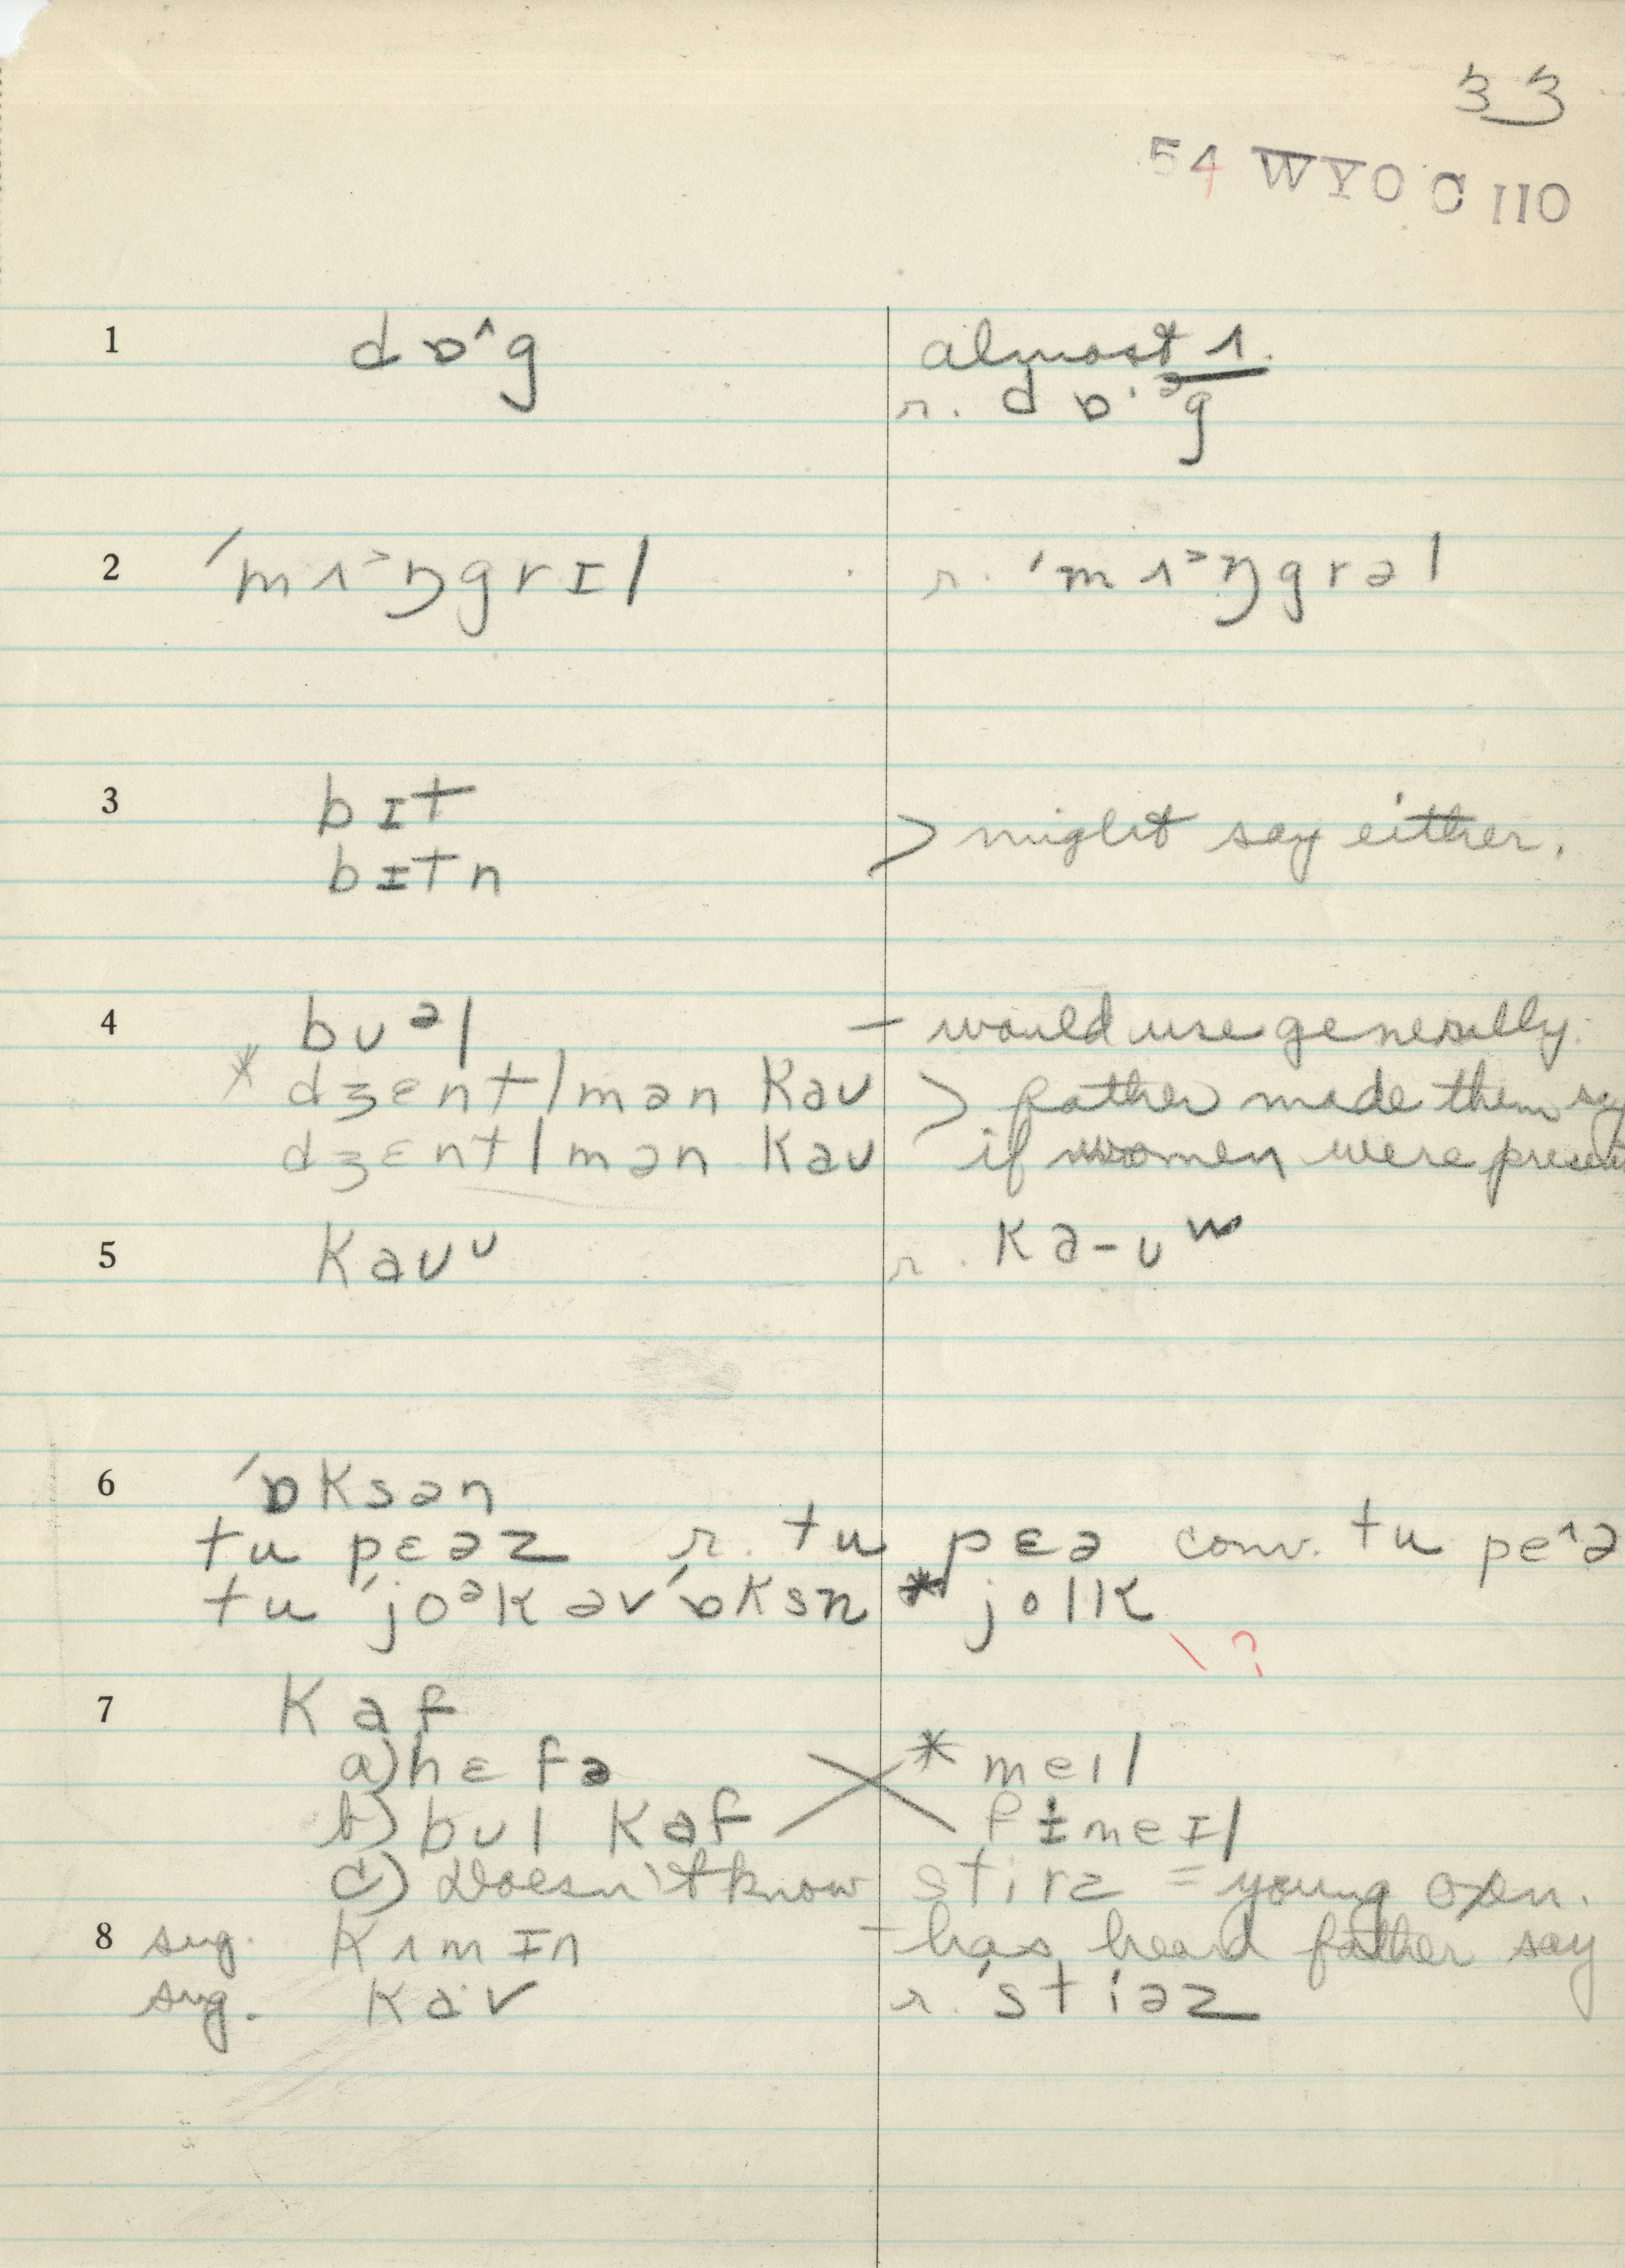 33
54 WYO C 110
1 dɒ^g almost ʌ.
r. dɒ·ᵊg
2 ˈmʌᵊŋgrɪl r. ˈmʌᵊŋgrəl
3 bɪt
bɪtn > might say either.
4 bᴜᵊl – would use generally.
* dʒentlmən kaᴜ > father made them say
dʒɛntlmən kaᴜ if women were present
5 kaᴜᶸ r. ka-ᴜʷ
6 ˈɒksən
tu pɛəz r. tu pɛə conv. tu pe^ə
tu ˈjoᵊk əvˈɒksn * jolk
\ ?
7 kaf
a) hɛfə * meɪl
b) bᴜl kaf fɨmeɪl
c) Doesn't know stirz = young oxen.
8 sug. kʌmɪn – has heard father say
sug. ka·v r. ˈstiəz